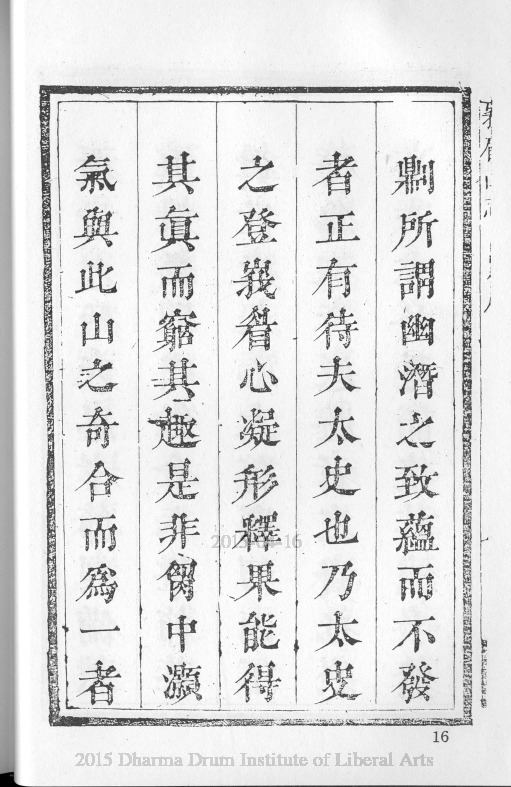 鼎所謂幽潛之致蘊而不發
者正有待夫太史也乃太史
之登峩眉心凝形釋果能得
其眞而窮其趣是非胷中灝
氣與此山之奇合而爲一者
16
2015 Dharma Drum Institute of Liberal Arts